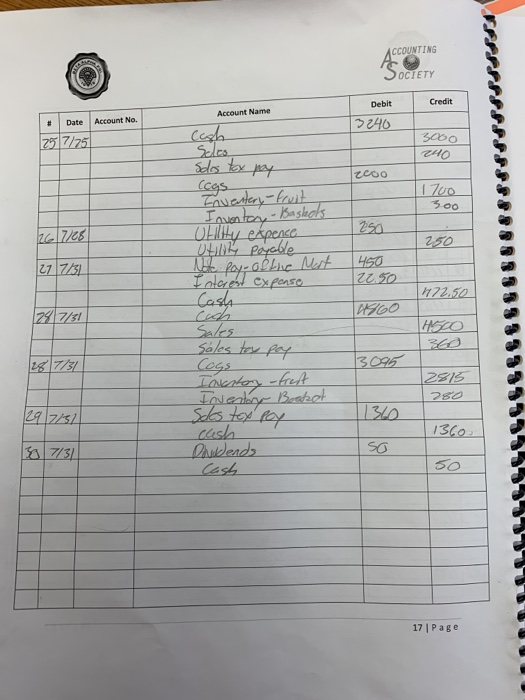 ACCOUNTING
SOCIETY
# Date Account No. Account Name Debit Credit
25 7/25 Cash 3240
Sales 3000
Sales tax pay 240
Cogs 2000
Inventory-fruit 1700
Inventory-Baskets 300
26 7/28 Utility expence 250
Utility payable 250
27 7/31 Note Pay-office Mart 450
Interest expense 22.50
Cash 472.50
28 7/31 Cash 4860
Sales 4500
Sales tax pay 360
28 7/31 Cogs 3095
Inventory-fruit 2815
Inventory-Basket 280
29 7/31 Sales tax pay 1360
cash 1360
30 7/31 Dividends 50
Cash 50
17 | Page